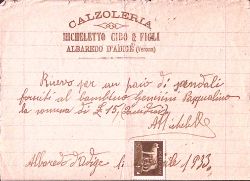 CALZOLERIA
MICHELETTO CIRO & FIGLI
ALBAREDO D'ADIGE (Verona)
Ricevo per un paio di sandali
forniti al bambino Pasqualino
la somma di £ 15,
A Michelett
Albaredo d'Adige li 1933